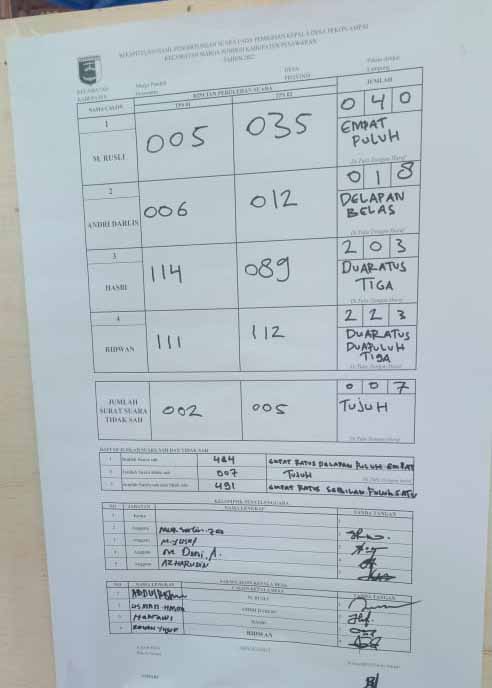 REKAPITULASI HASIL PENGHITUNGAN SUARA PADA PEMILIHAN KEPALA DESA PEKON AMPAI
KECAMATAN MARGA PUNDUH KABUPATEN PESAWARAN
TAHUN 2022
KECAMATAN Marga Punduh DESA Pekon Ampai
KABUPATEN Pesawaran PROVINSI Lampung
NAMA CALON RINCIAN PEROLEHAN SUARA JUMLAH
TPS 01 TPS 02
1 0 4 0
M. RUSLI 005 035 EMPAT
PULUH
Di Tulis Dengan Huruf
2 0 1 8
ANDRI DARLIS 006 012 DELAPAN
BELAS
Di Tulis Dengan Huruf
3 2 0 3
HASBI 114 089 DUARATUS
TIGA
Di Tulis Dengan Huruf
4 2 2 3
RIDWAN 111 112 DUARATUS
DUAPULUH
TIGA
Di Tulis Dengan Huruf
JUMLAH 0 0 7
SURAT SUARA 002 005 TUJUH
TIDAK SAH
Di Tulis Dengan Huruf
1 Jumlah Suara sah 484 EMPAT RATUS DELAPAN PULUH EMPAT
2 Jumlah Suara tidak sah 007 TUJUH
3 Jumlah Suara sah dan tidak sah 491 EMPAT RATUS SEMBILAN PULUH SATU
KELOMPOK PENYELENGGARA
NO JABATAN NAMA LENGKAP TANDA TANGAN
1 Ketua
2 Anggota
3 Anggota M. YUSUF
4 Anggota M. Dani. A.
5 Anggota AZHARUDIN
NO NAMA LENGKAP CALON KEPALA DESA TANDA TANGAN
1 M. RUSLI
2 USMAN ANDRI DARLIS
3 HASBI
4 RIDWAN